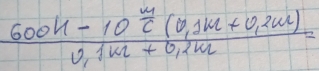 600Н - 10 м/с (0,1кг + 0,2кг) =
0,1кг + 0,2кг